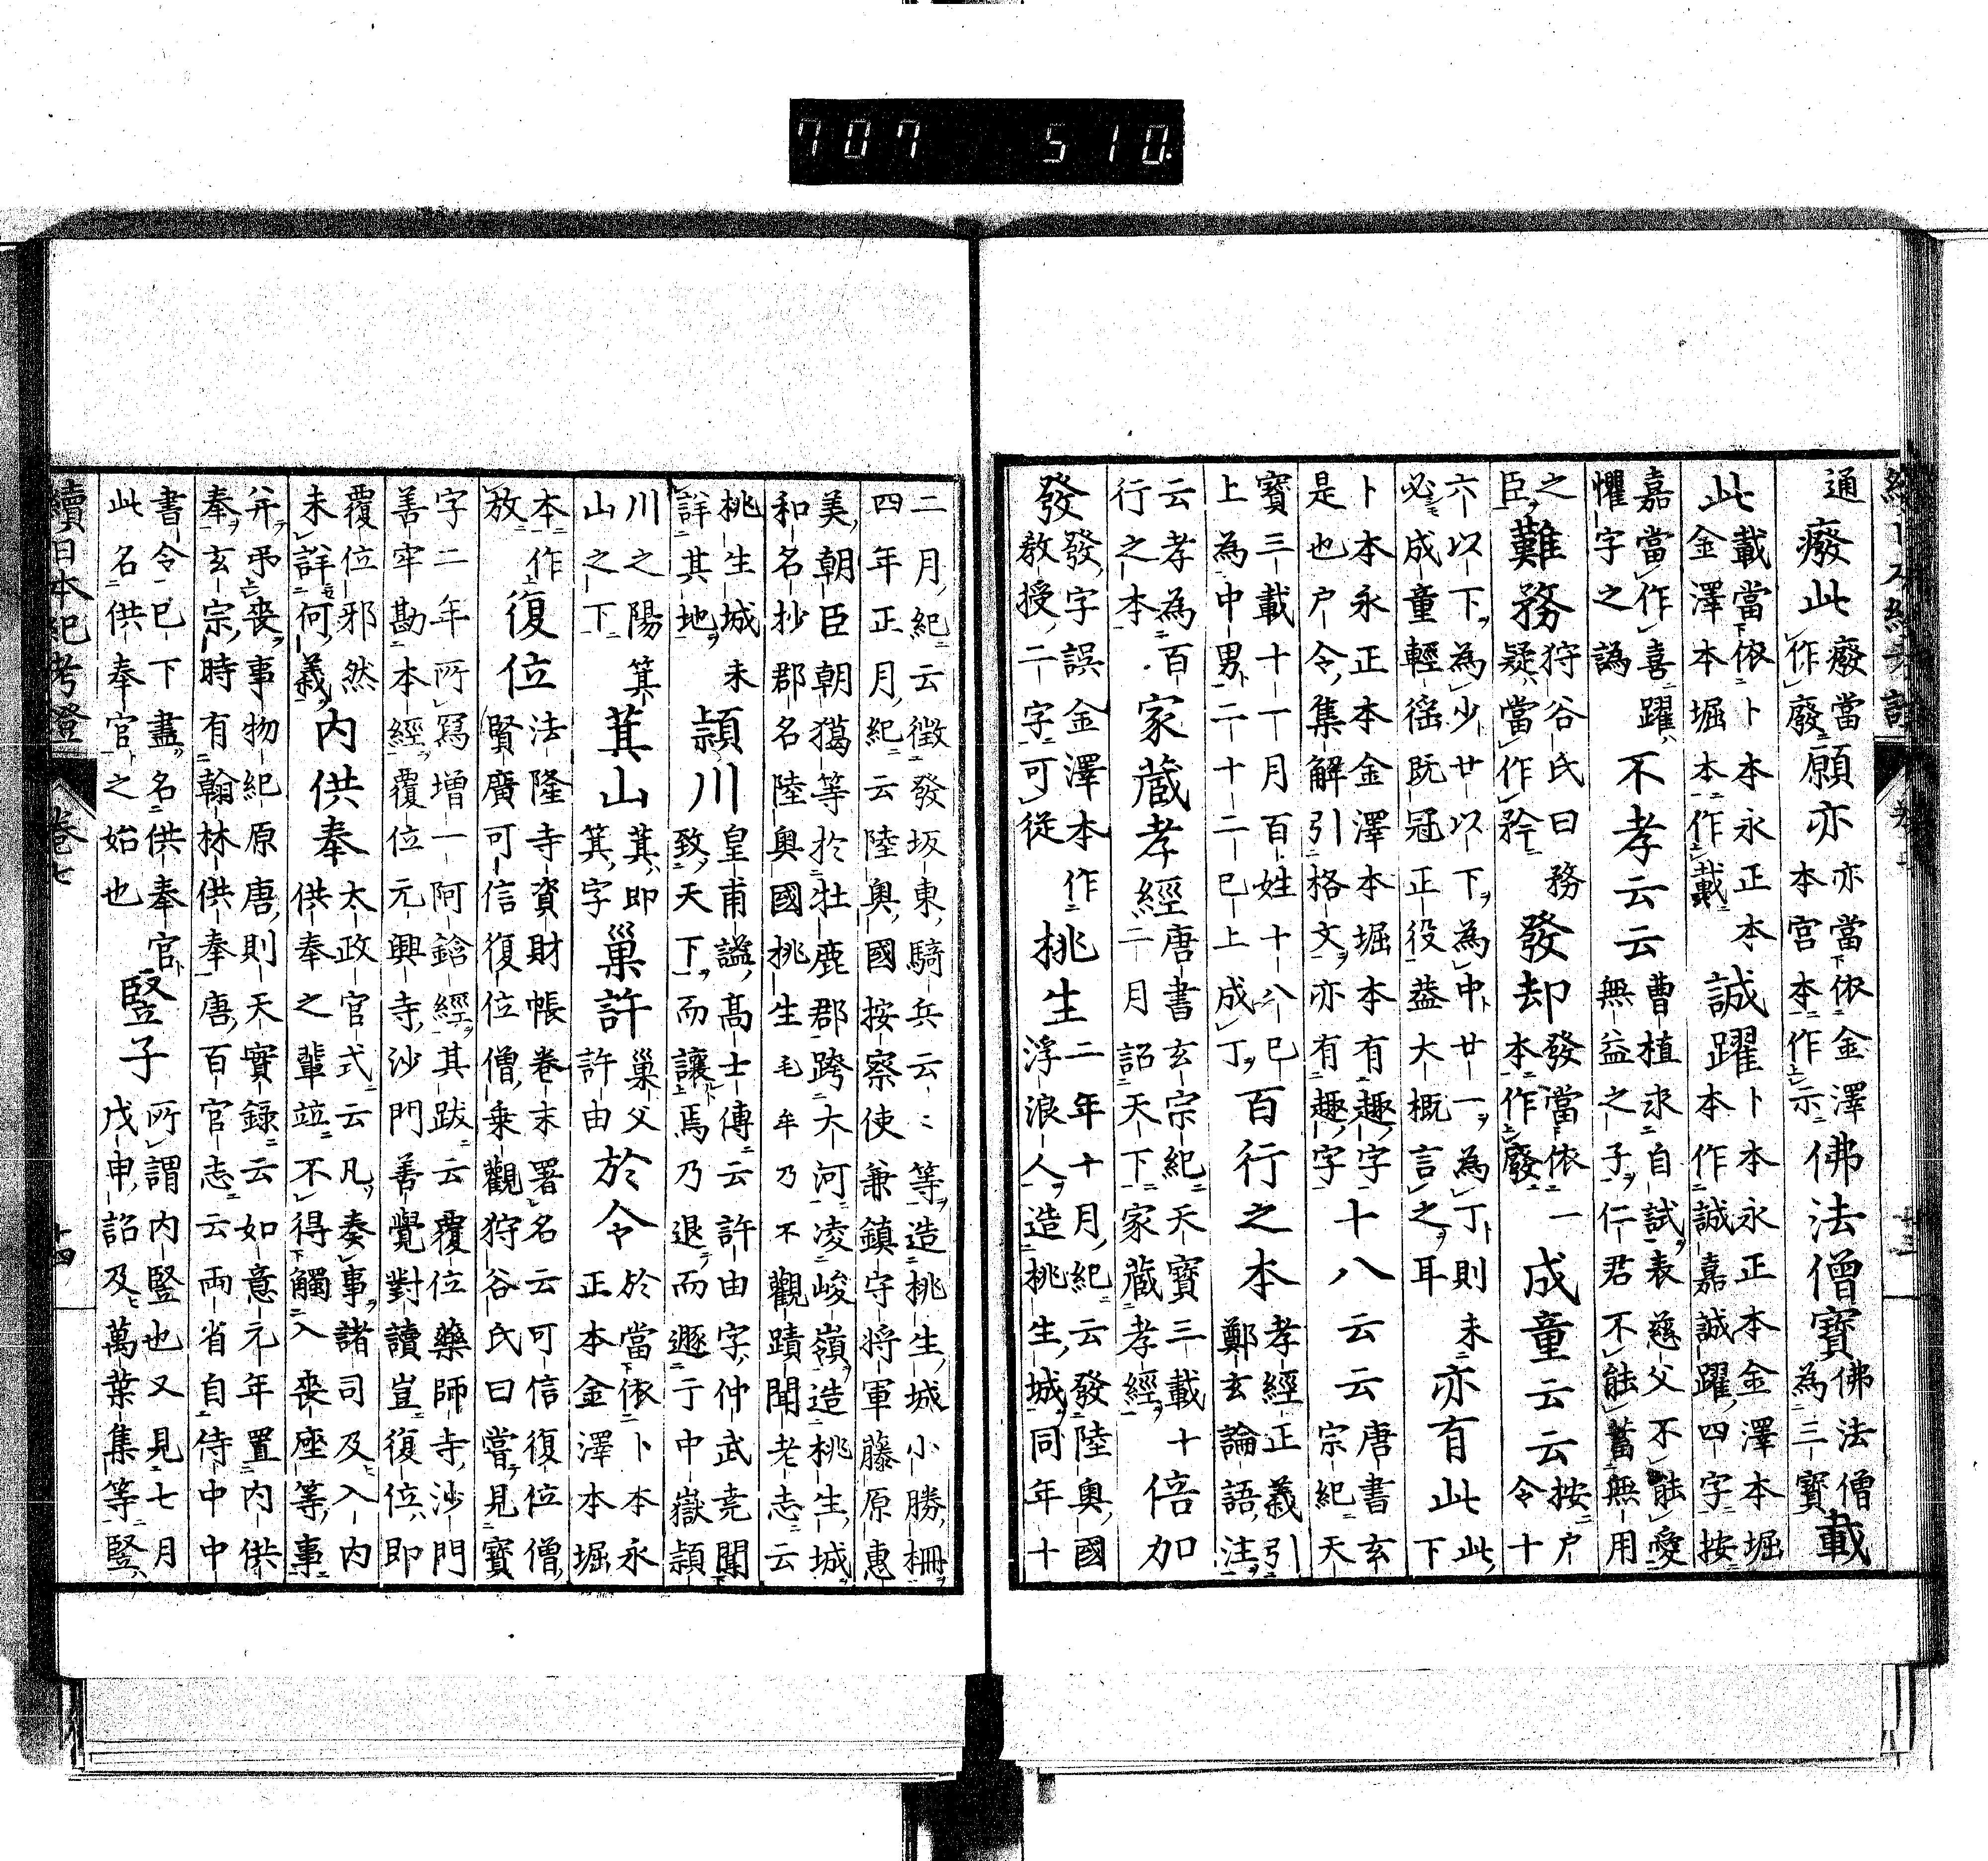 續日本紀考證 卷七 十三
通廢此廢當作廢願亦亦當依金澤本宮本作示佛法僧寶佛法僧為三寶載
此載當依卜本永正本金澤本堀本作載誠躍卜本永正本金澤本堀本作誠嘉誠躍四字按
嘉當作喜躍懼字之譌不孝云云曹植求自試表慈父不能愛無益之子仁君不能蓄無用
之臣難務狩谷氏曰務疑當作矜發却發當依一本作廢成童云云按戸令十
六以下為少廿以下為中廿一為丁則未必成童輕徭既冠正役益大概言之耳亦有此此下
卜本永正本金澤本堀本有趣字是也戸令集解引格文亦有趣字十八云云唐書玄宗紀天
寶三載十一月百姓十八已上為中男二十二已上成丁百行之本孝經正義引鄭玄論語注
云孝為百行之本家藏孝經唐書玄宗紀天寶三載十二月詔天下家藏孝經倍加
發發字誤金澤本作教授二字可從桃生二年十月紀云發陸奧國浮浪人造桃生城同年十
二月紀云徵發坂東騎兵云々等造桃生城小勝柵四年正月紀云陸奧國按察使兼鎮守將軍藤原惠
美朝臣朝獦等於牡鹿郡跨大河凌峻嶺造桃生城和名抄郡名陸奧國桃生毛牟乃不觀蹟聞老志云
桃生城未詳其地潁川皇甫謐高士傳云許由字仲武堯聞致天下而讓焉乃退而遯于中嶽潁
川之陽箕山之下萁山萁即箕字巢許巢父許由於令於當依卜本永正本金澤本堀
本作放復位法隆寺資財帳卷末署名云可信復位僧賢廣可信復位僧乗觀狩谷氏曰嘗見寶
字二年所寫增一阿鋡經其跋云覆位藥師寺沙門善牢勘本經覆位元興寺沙門善覺對讀豈復位即
覆位邪然未詳何義內供奉太政官式云凡奏事諸司及入內供奉之輩竝不得觸入喪座等事
并弔喪事物紀原唐則天實録云如意元年置內供奉玄宗時有翰林供奉唐百官志云兩省自侍中中
書令已下盡名供奉官此名供奉官之始也豎子所謂內豎也又見七月戊申詔及萬葉集等豎
續日本紀考證 卷七 十四
707 510